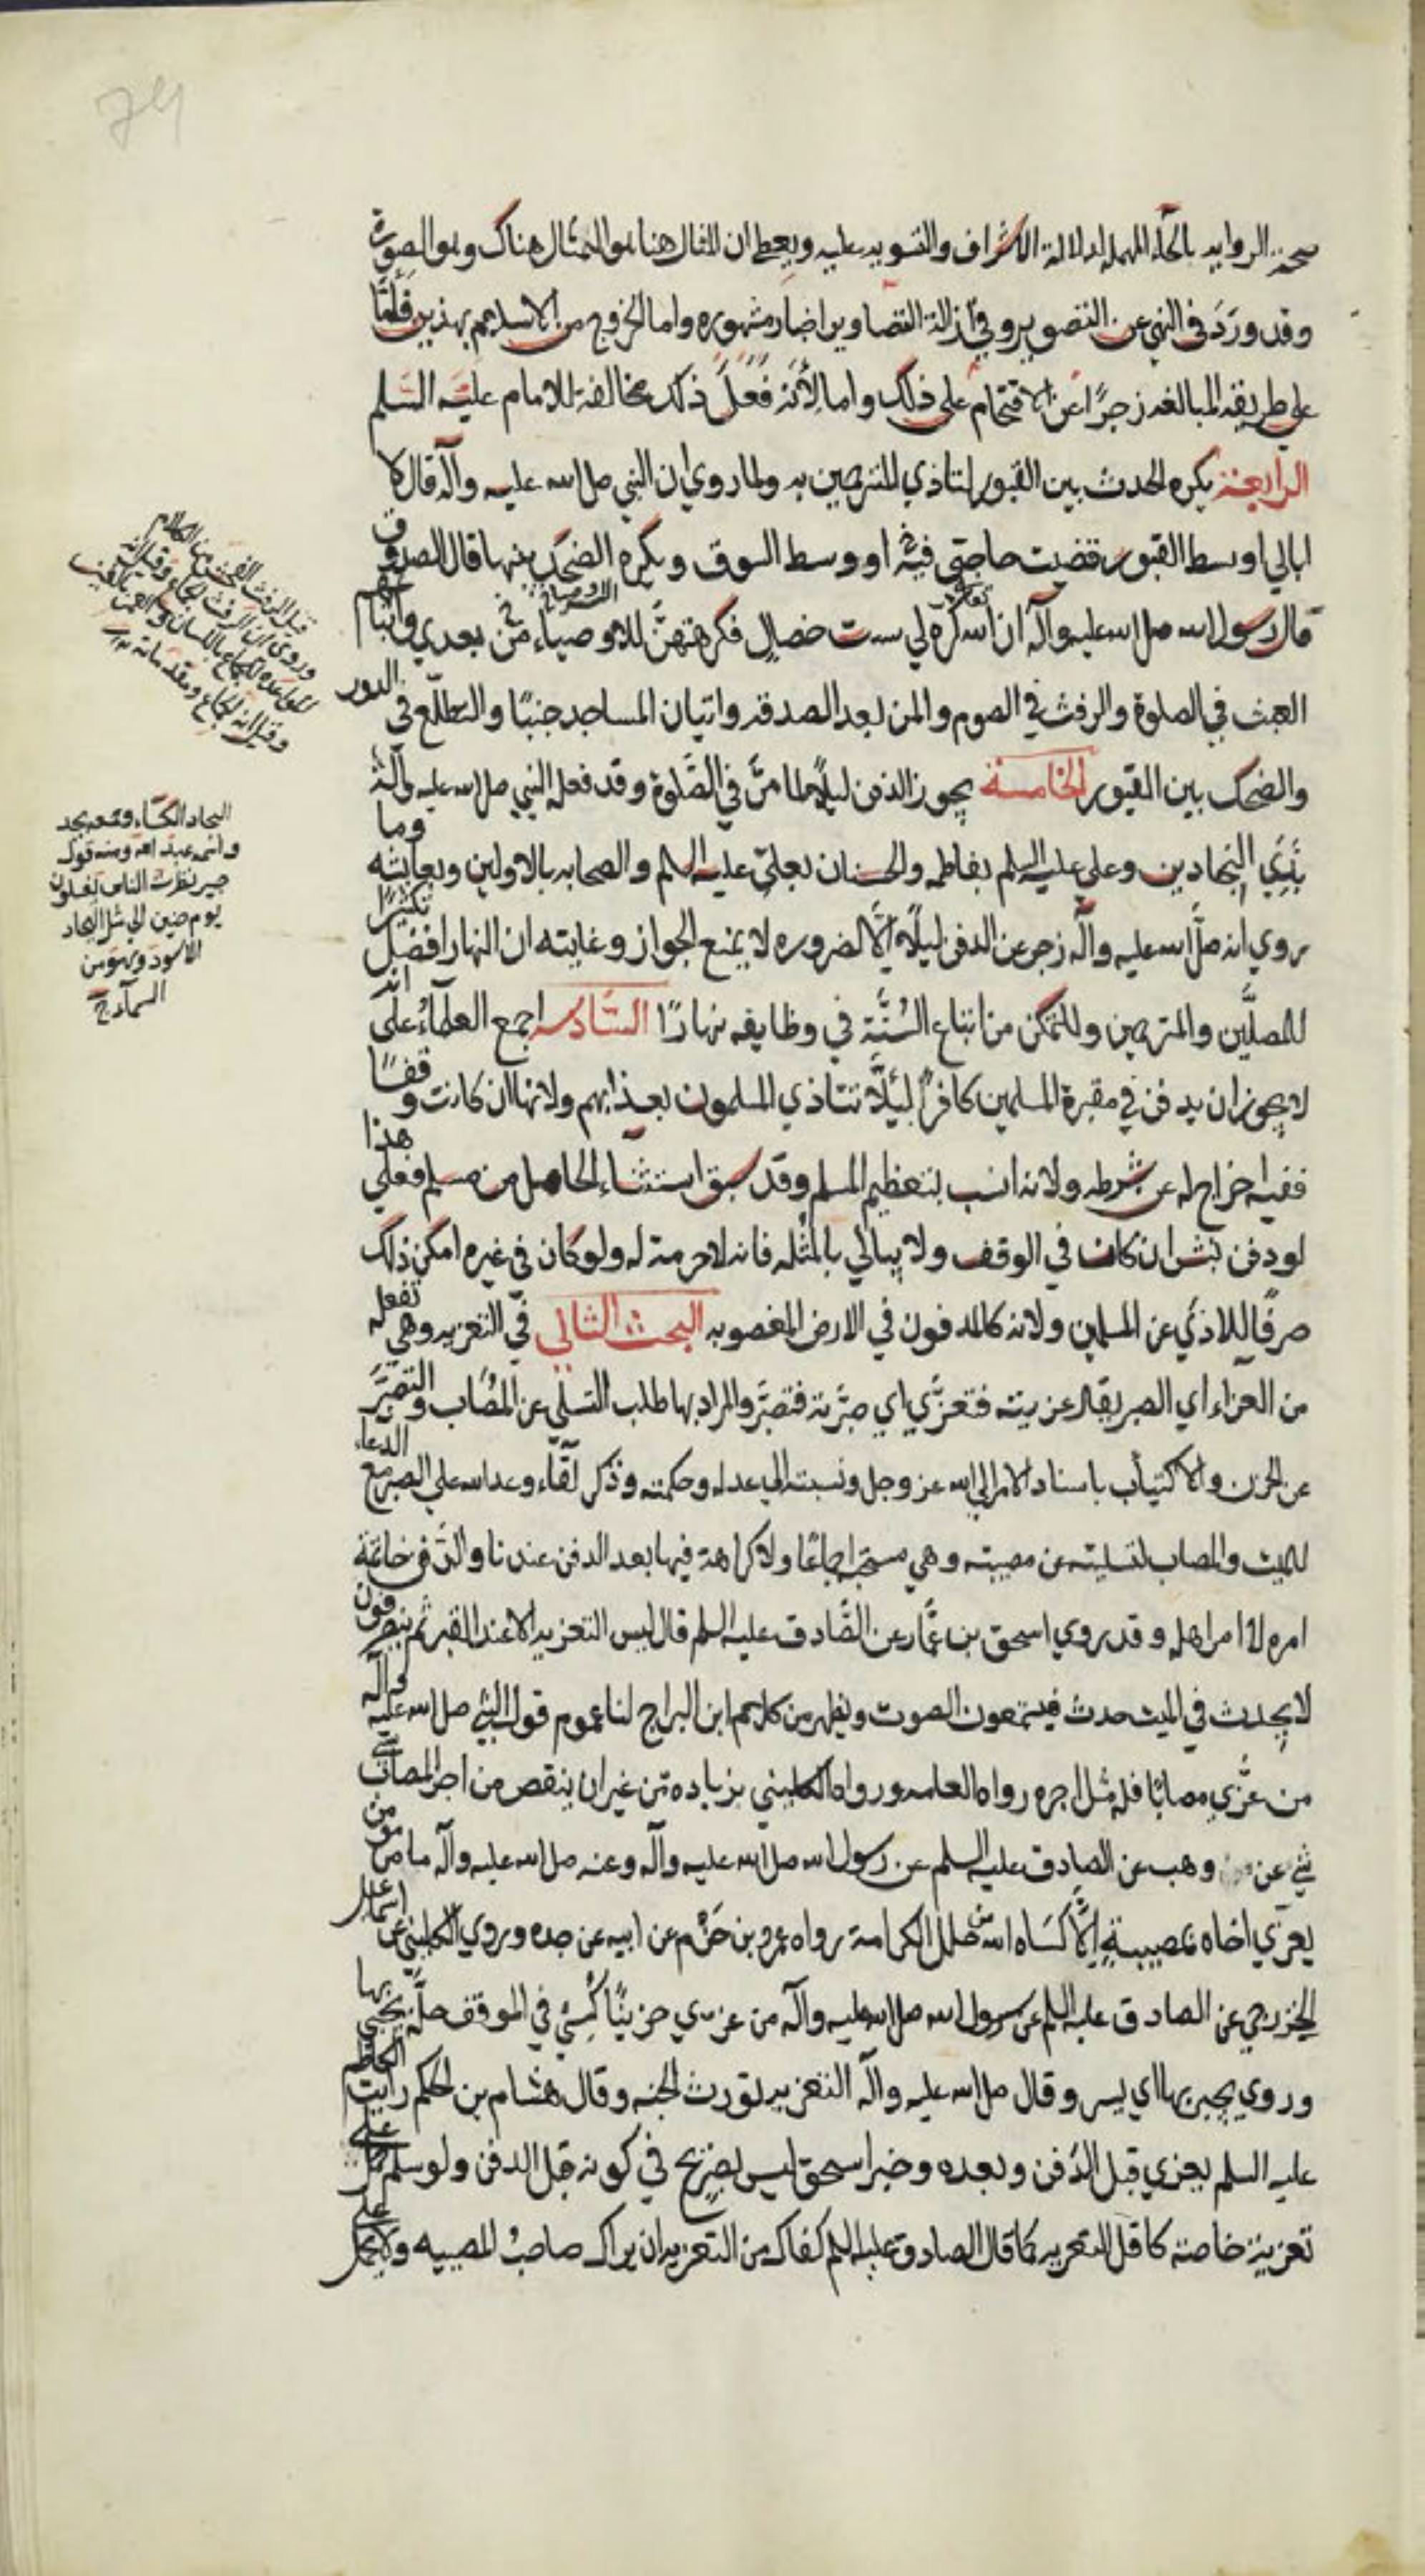 صحة الرواية بالحاء المهملة لدلالة الاشراف والتسوية عليه ويعطي ان المثال هنا هو التمثال هناك وهو الصورة
وقد ورد في النهي عن التصوير وفي ازالة التصاوير اخبار مشهورة واما الخروج من الاسلام بهذين فامّا
على طريقة المبالغة زجرًا عن الاقتحام على ذلك واما لأنه فَعَلَ ذلك مخالفة للامام عليه السلم
الرابعة يكره الحدث بين القبور لتاذي المترحمين به ولما روي ان النبي صل الله عليه وآله قال لا
ابالي اوسط القبور قضيت حاجتي فيه او وسط السوق ويكره الضحك بينها قال الصدوق
قال رسول الله صل الله عليه وآله ان الله كره لي ست خصال فكرهتهنَّ للاوصياء من بعدي واتباعهم
العبث في الصلوة والرفث في الصوم والمن بعد الصدقة واتيان المساجد جنبًا والتطلّع في الدور
والضحك بين القبور الخامسة يجوز الدفن ليلًا لما مرَّ في الصّلوة وقد فعله النبي صل الله عليه وآله
بذي البجادين وعلي عليه السلم بفاطمه والحسنان بعليّ عليه السلم والصحابه بالاولين وبعايشه وما
روي انه صلّ الله عليه وآله زجر عن الدفن ليلًا الَّا لضروره لا يمنع الجواز وغايته ان النهار افضل تكثيرًا
للمصلّين والمترحمين وللتمكن من اتباع السُّنَّة في وظايفه نهارًا السّادسه اجمع العلمآء على انه
لا يجوز ان يدفن في مقبرة المسلمين كافرًا لئلَّا تتاذي المسلمون بعذابهم ولانها ان كانت وقفًا
ففيه اخراج له عن شرطه ولانه انسب بتعظيم المسلم وقد سبق استثناء الحامل من مسلم فعلي هذا
لو دفن نبش ان كان في الوقف ولا يبالي بالمثله فانه لا حرمة له ولو كان في غيره امكن ذلك
صرفًا للاذي عن المسلمين ولانه كالمدفون في الارض المغصوبه البحث الثاني في التعزيه وهي تفعله
من العزاء اي الصبر يقال عزيته فتعزّي اي صبّرته فتصبَّر والمراد بها طلب التسلّي عن المصاب والتصبّر
عن الحزن والاكتيأب باسناد الامر الي الله عز وجل ونسبته الي عدله وحكمته وذكر لقآء وعد الله على الصبر مع الدعاء
للميت والمصاب لتسليته عن مصيبته وهي مستحبه اجماعًا ولا كراهة فيها بعد الدفن عندنا
امره لا امر اهله وقد روي اسحق بن عمَّار عن الصّادق عليه السلم قال ليس التعزيه الا عند القبر ثم ينصرفون
لا يحدث في الميت حدث فيسمعون الصوت ويظهر من كلامهم ابن البراج لنا عموم قول النبي صل الله عليه وآله
من عزّي مصابًا فله مثل اجره رواه العامه ورواه الكليني بزياده من غير ان ينقص من اجر المصاب
شي عن وهب عن الصادق عليه السلم عن رسول الله صل الله عليه وآله وعنه صل الله عليه وآله ما من مؤمن
يعزّي اخاه بمصيبةٍ الَّا كسَاه الله من حلل الكرامة رواه عمرو بن حَزْم عن ابيه عن جده وروي الكليني عن اسماعيل
الخزرجي عن الصادق عليه السلم عن رسول الله صل الله عليه وآله من عزي حزينًا كُسِيَ في الموقف حلّة يحبي بها
وروي يحبر بها اي يسر وقال صل الله عليه وآله التعزيه تورث الجنه وقال هشام بن الحكم رايت الكاظم
عليه السلم يعزي قبل الدفن وبعده وخبر اسحق ليس بصريح في كونه قبل الدفن ولو سلم حمل علي
تعزية خاصة كاقل التعزيه كما قال الصادق عليه السلم كفاك من التعزيه ان يراك صاحب المصيبه ولا يحمل علي
قيل الرفث الفحش من الكلام
وروي ان الرفث الجماع وقيل انه
المواعده للجماع باللسان
وقيل انه الجماع ومقدماته
البجاد الكساء وجمعه بجد
حين نظرت الناس
يوم حنين الي مثل البجاد
الاسود وهو من
السمآء
74